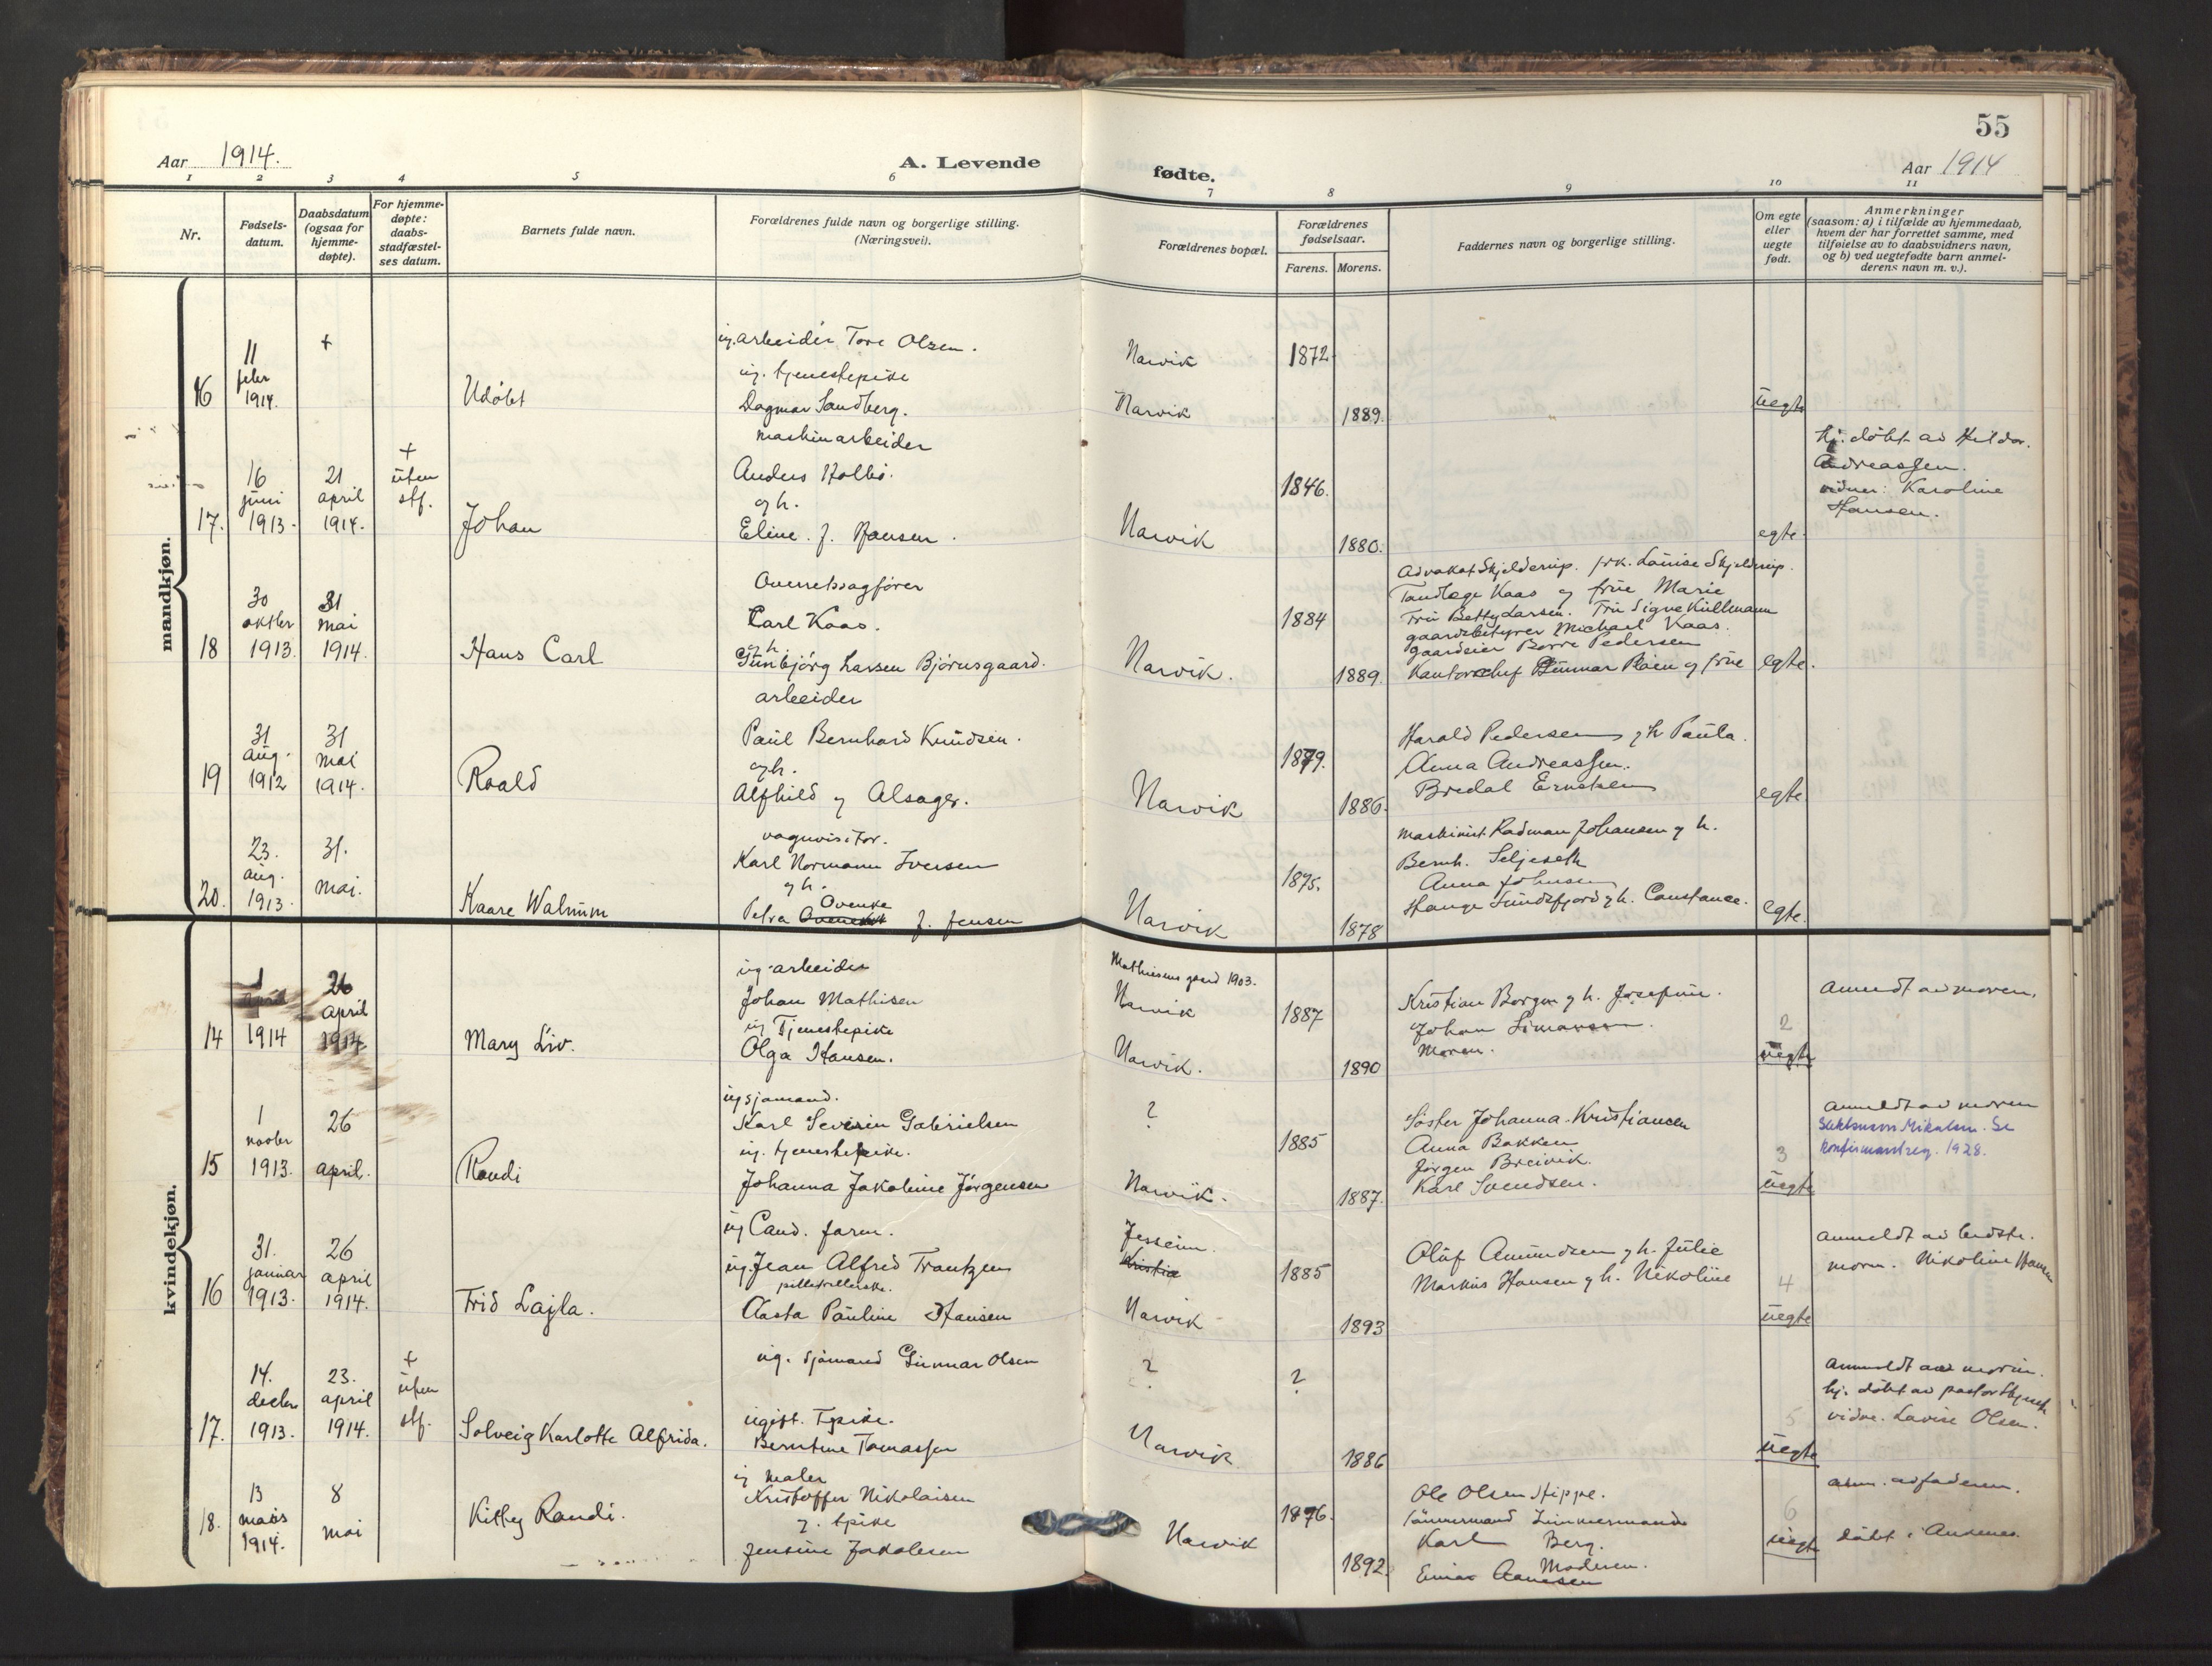 55
Aar 1914.
A. Levende
fødte.
Aar 1914
1 2 3 4 5 6 7 8 9 10 11
Nr.
Fødsels-
datum.
Daabsdatum
(ogsaa for
hjemme-
døpte).
For hjemme-
døpte:
daabs-
stadfæstel-
ses datum.
Barnets fulde navn.
Forældrenes fulde navn og borgerlige stilling.
(Næringsvei).
Forældrenes bopæl.
Forældrenes
fødselsaar.
Farens. Morens.
Faddernes navn og borgerlige stilling.
Om egte
eller
uegte
født.
Anmerkninger
(saasom: a) i tilfælde av hjemmedaab,
hvem der har forrettet samme, med
tilføielse av to daabsvidners navn,
og b) ved uegtefødte barn anmel-
derens navn m. v.).
mandkjøn.
16
11
febr
1914.
+
Udöbt
ug. arbeider Tore Olsen.
ug. tjenestepike
Dagmar Sandberg.
Narvik
Narvik
1872
1889.
uegte
17.
16
juni
1913.
21
april
1914.
+
uten
stf.
Johan
maskinarbeider
Anders Holbö.
og h.
Eline. J. Hansen.
Narvik
1846.
1880.
egte.
hj. döbt av Hildor.
Andreassen.
vidner: Karoline
Hansen.
18
30
oktbr
1913.
31
mai
1914.
Hans Carl
Overretssagförer
Carl Kaas.
og h.
Gunbjörg Larssen Björnsgaard.
Narvik.
1884
1889.
Advokat Skjelderup. frk. Louise Skjelderup.
Tandlæge Kaas og frue Marie
Fru Betty Larsen. Fru Signe Kullmann
gaardsbestyrer Michael Kaas.
gaardeier Borre Pedersen
Kontorchef Gunnar Röien og frue
egte.
19
31
aug.
1912
31
mai
1914.
Roald
arbeider
Paul Bernhard Knudsen.
og h.
Alfhild y Alsager.
Narvik
1879.
1886.
Harald Pedersen og h. Paula.
Anna Andreassen.
Bredal Erntsen
egte.
20.
23.
aug.
1913.
31.
mai.
Kaare Walmum
vognvisitør.
Karl Normann Iversen
og h.
Ovenke
Petra J. Jensen
Narvik
1875.
1878
maskinist Radman Johansen og h.
Bernh. Seljeseth
Anna Johnsen
Hauge Sundsfjord og h. Constance.
egte.
kvindekjøn.
14
1
april
1914
26
april
1914
Mary Liv.
ug. arbeider
Johan Mathisen
ug Tjenestepike
Olga Hansen.
Mathisens gaard 1903.
Narvik
Narvik.
1887
1890
Kristian Borgen og h. Josefine.
Johan Simonsen.
Moren.
2
uegte
Anmeldt av moren.
15
1
novbr
1913.
26
april.
Randi
ug sjømand.
Karl Severin Gabrielsen
ug. tjenestepike.
Johanna Jakobine Jörgensen
?
Narvik.
1885
1887.
Söster Johanna Kristiansen
Anna Bakken
Jörgen Breivik.
Karl Svendsen.
3
uegte
anmeldt av moren
Slektsnavn Mikalsen. Se
konfirmantreg. 1928.
16
31.
januar
1913.
26
april
1914.
Frid Lajla.
ug Cand. farm.
ug. Jean Alfred Trantzen
pilletrillerske.
Aasta Pauline Hansen
Jessheim.
Kristia
Narvik
1885
1893
Oluf Amundsen og h. Julie
Markus Hansen og h. Nikoline
4
uegte
anmeldt av bedste.
moren. Nikoline Hansen
17.
14.
decbr
1913.
23.
april
1914.
+
uten
stf.
Solveig Karlotte Alfrida.
ug. Sjömand Gunnar Olsen
ugift. Tpike.
Berntine Tomassen
?
Narvik
?
1886
5
uegte
anmeldt av moren.
hj. döbt av pastor
vidne. Lovise Olsen.
18.
13
mars
1914.
8
mai
Kitty Randi.
ug maler
Kristoffer Nikolaisen
y. tpike
Jensine Jakobsen
Narvik
1876.
1892.
Ole Olsen Hippe.
Karl Berg.
Moderen.
Einar Aanesen
6
uegte
anm. av faderen.
döbt i Andenes.